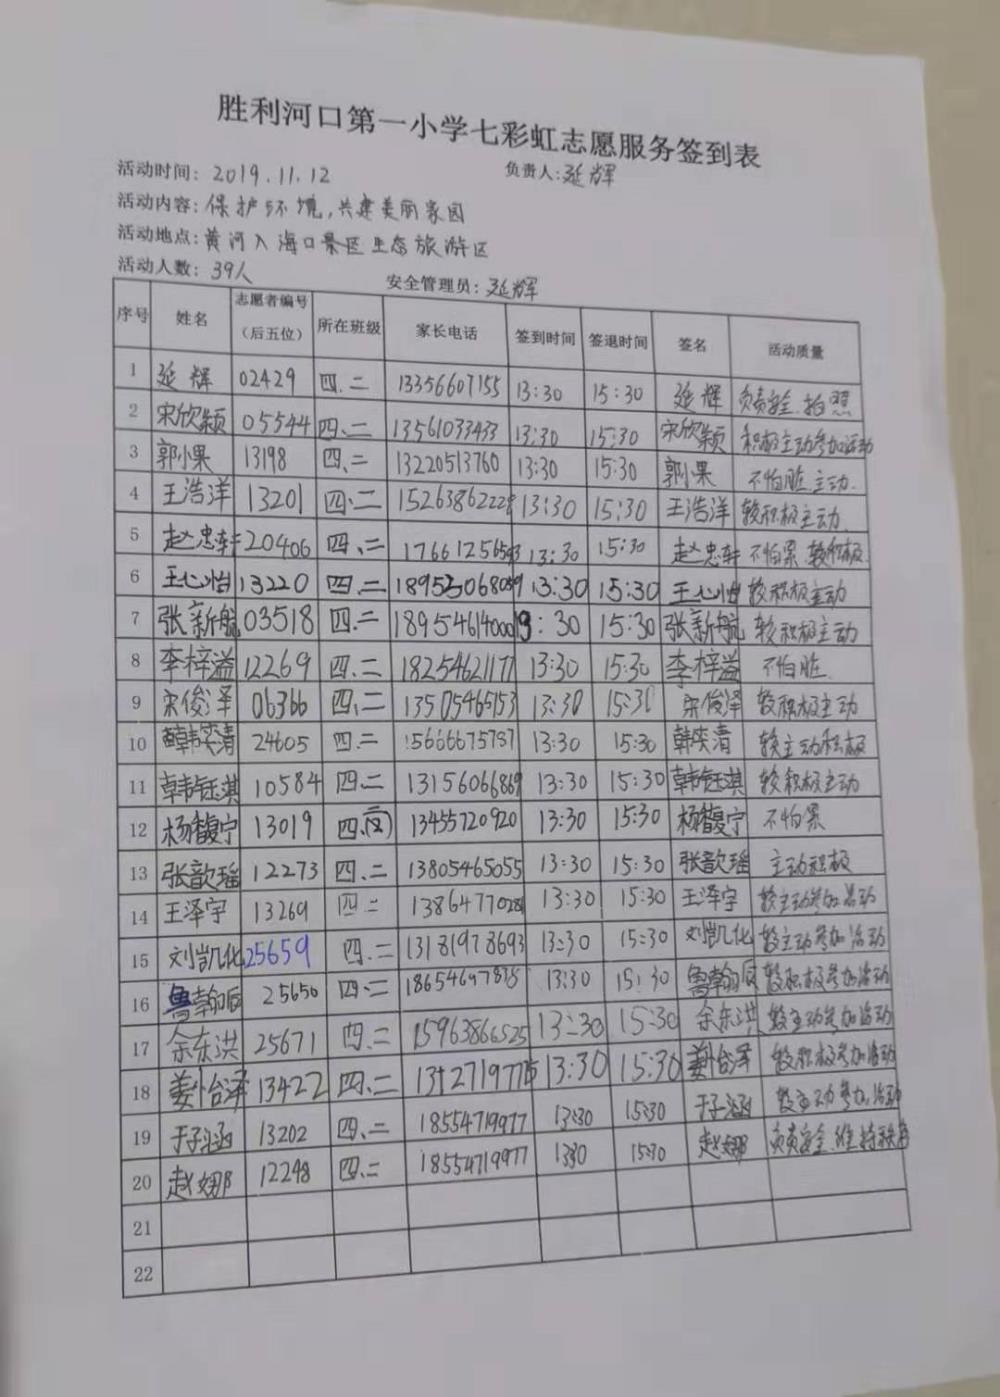 胜利河口第一小学七彩虹志愿服务签到表
活动时间：2019.11.12 负责人：延辉
活动内容：保护环境，共建美丽家园
活动地点：黄河入海口景区生态旅游区
活动人数：39人 安全管理员：延辉
序号 姓名 志愿者编号（后五位） 所在班级 家长电话 签到时间 签退时间 签名 活动质量
1 延辉 02429 四、二 13356607155 13:30 15:30 延辉 负责安全、拍照
2 宋欣颖 05544 四、二 13561033433 13:30 15:30 宋欣颖 积极主动参加活动
3 郭小果 13198 四、二 13220513760 13:30 15:30 郭小果 不怕脏、主动.
4 王浩洋 13201 四、二 15263862228 13:30 15:30 王浩洋 较积极主动.
5 赵忠轩 20406 四、二 13:30 15:30 赵忠轩 不怕累、较积极
6 王心怡 13220 四、二 13:30 15:30 王心怡 较积极主动
7 张新航 03518 四、二 15:30 张新航 较积极主动
8 李梓溢 12269 四、二 18254621177 13:30 15:30 李梓溢 不怕脏.
9 宋俊泽 06366 四、二 13505465153 13:30 15:30 宋俊泽 较积极主动
10 韩奕清 24605 四、二 15666675787 13:30 15:30 韩奕清 较主动积极
11 韩钰淇 10584 四、二 13156066869 13:30 15:30 韩钰淇 较积极主动
12 杨馥宁 13019 四、二 13455720920 13:30 15:30 杨馥宁 不怕累
13 张歆瑶 12273 四、二 13805465055 13:30 15:30 张歆瑶 主动积极
14 王泽宇 13269 四、二 13864770281 13:30 15:30 王泽宇 较主动参加活动
15 刘凯化 25659 四、二 13181978693 13:30 15:30 刘凯化 较主动参加活动
16 鲁翰 25650 四、二 18654697875 13:30 15:30 鲁翰 较积极参加活动
17 余东洪 25671 四、二 15963866525 13:30 15:30 余东洪 较主动参加活动
18 姜怡泽 13422 四、二 13:30 15:30 姜怡泽 较积极参加活动
19 于子涵 13202 四、二 18554719977 13:30 15:30 于子涵 较主动参加活动
20 赵娜 12248 四、二 18554719977 13:30 15:30 赵娜 负责安全、维持秩序
21
22